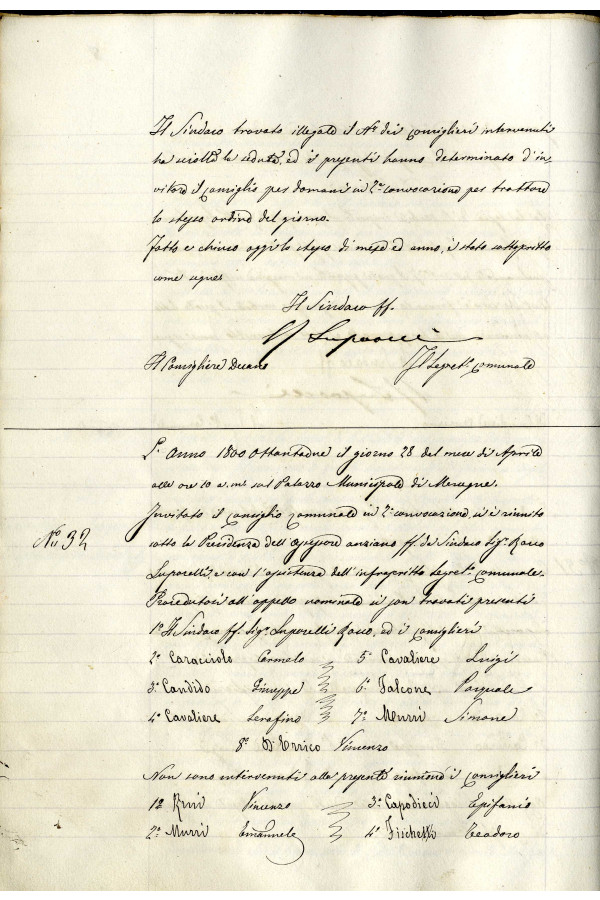 Il Sindaco trovato illegale il N.º dei Consiglieri intervenuti
ha sciolto la seduta, ed i presenti hanno determinato d'in-
vitare il Consiglio per domani in 2ª convocazione per trattare
lo stesso ordine del giorno.
Fatto e chiuso oggi lo stesso dì mese ed anno, è stato sottoscritto
come segue
Il Sindaco ff.
Il Consigliere Il Segret.º Comunale
L' Anno 1800 Ottantadue il giorno 28 del mese di Aprile
alle ore 10 a.m. sul Palazzo Municipale di Mesagne.
Invitato il Consiglio Comunale in 2ª convocazione, si è riunito
sotto la Presidenza dell'Assessore anziano ff. da Sindaco Sig.r Rocco
Nº 32
Luporelli, e con l'assistenza dell'infrascritto Segret.º Comunale.
Procedutosi all'appello nominale si son trovati presenti
1º Il Sindaco ff. Sig.r Luporelli Rocco, ed i Consiglieri
2º Caracciolo Carmelo 5º Cavaliere Luigi
3º Candido Giuseppe 6º Falcone Pasquale
4º Cavaliere Serafino 7º Murri Simone
8º D'Errico Vincenzo
Non sono intervenuti alla presente riunione i Consiglieri
1º Vincenzo 3º Capodieci Epifanio
2º Murri Emanuele 4º Fischetti Teodoro